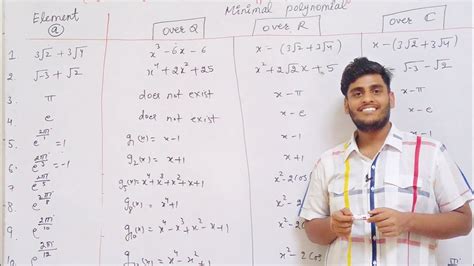 Minimal polynomial
Element
a
over Q
over R
over C
1. 3√2 + 3√4
x³ - 6x - 6
x - (3√2 + 3√4)
x - (3√2 + 3√4)
2. √-3 + √2
x⁴ + 2x² + 25
x² + 2√2x + 5
√-3 - √2
3. π
does not exist
x - π
x - π
4. e
does not exist
x - e
x - e
5. e^(2πi/1) = 1
g₁(x) = x - 1
6. e^(2πi/2) = -1
g₂(x) = x + 1
7. e^(2πi/5)
g₅(x) = x⁴ + x³ + x² + x + 1
x² - 2cos
8. e^(2πi/8)
g₈(x) = x⁴ + 1
x² - 2
9. e^(2πi/10)
g₁₀(x) = x⁴ - x³ + x² - x + 1
x² - 2
10. e^(2πi/12)
x⁴ - x² + 1
x² - 2cos